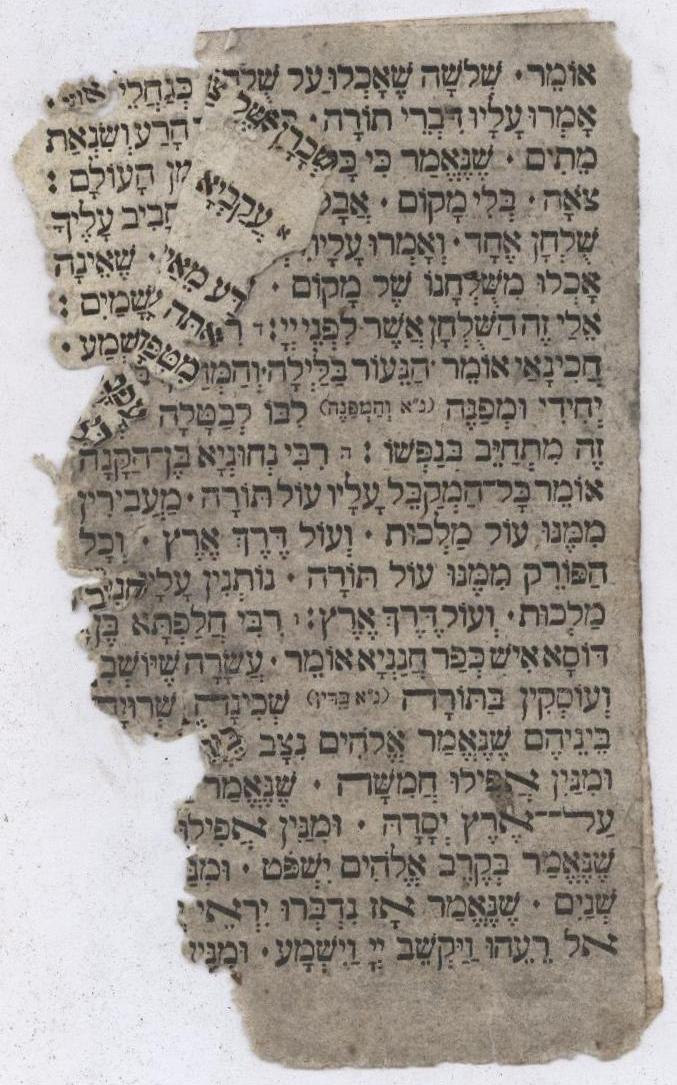 אוֹמֵר · שְׁלשָׁה שֶׁאָכְלוּ עַל כְּנַחֲלֵי
אָמְרוּ עָלָיו דִּבְרֵי תוֹרָה · הָרַע וְשִׂנְאַת
מֵתִים · שֶׁנֶּאֱמַר כִּי הָעוֹלָם :
צֹאָה · בְּלִי מָקוֹם · אֲבָל עֲקַבְיָא חָבִיב עָלֶיךָ
שֻׁלְחָן אֶחָד · וְאָמְרוּ עָלָיו
אָכְלוּ מִשֻּׁלְחָנוֹ שֶׁל מָקוֹם · דַּע מַאי שֶׁאֵינָהּ
אֵלַי זֶה הַשֻּׁלְחָן אֲשֶׁר לִפְנֵי יְיָ : ד אַתָּה שָׁמַיִם :
חֲכִינַאי אוֹמֵר הַנֵּעוֹר בַּלַּיְלָה מִטִּפָּה
יְחִידִי וּמְפַנֶּה (נ״א וְהַמְפַנֶּה) לִבּוֹ לְבַטָּלָה
זֶה מִתְחַיֵּב בְּנַפְשׁוֹ : ה רִבִּי נְחוּנְיָא בֶּן־הַקָּנָה
אוֹמֵר כָּל־הַמְקַבֵּל עָלָיו עוֹל תּוֹרָה · מַעֲבִירִין
מִמֶּנּוּ עוֹל מַלְכוּת · וְעוֹל דֶּרֶךְ אֶרֶץ · וְכָל
הַפּוֹרֵק מִמֶּנּוּ עוֹל תּוֹרָה · נוֹתְנִין עָלָיו
מַלְכוּת · וְעוֹל דֶּרֶךְ אֶרֶץ : ו רִבִּי חֲלַפְתָּא בֶּן
דּוֹסָא אִישׁ כְּפַר חֲנַנְיָא אוֹמֵר · עֲשָׂרָה שֶׁיּוֹשְׁבִ
וְעוֹסְקִין בַּתּוֹרָה (נ״א בַּדִּין) שְׁכִינָה שְׁרוּיָה
בֵּינֵיהֶם שֶׁנֶּאֱמַר אֱלֹהִים נִצָּב
וּמִנַּיִן אֲפִילוּ חֲמִשָּׁה · שֶׁנֶּאֱמַר
עַל־אֶרֶץ יְסָדָהּ · וּמִנַּיִן אֲפִילוּ
שֶׁנֶּאֱמַר בְּקֶרֶב אֱלֹהִים יִשְׁפֹּט · וּמִנַּ
שְׁנַיִם · שֶׁנֶּאֱמַר אָז נִדְבְּרוּ יִרְאֵי
אֶל רֵעֵהוּ וַיַּקְשֵׁב יְיָ וַיִּשְׁמָע · וּמִנַּיִן